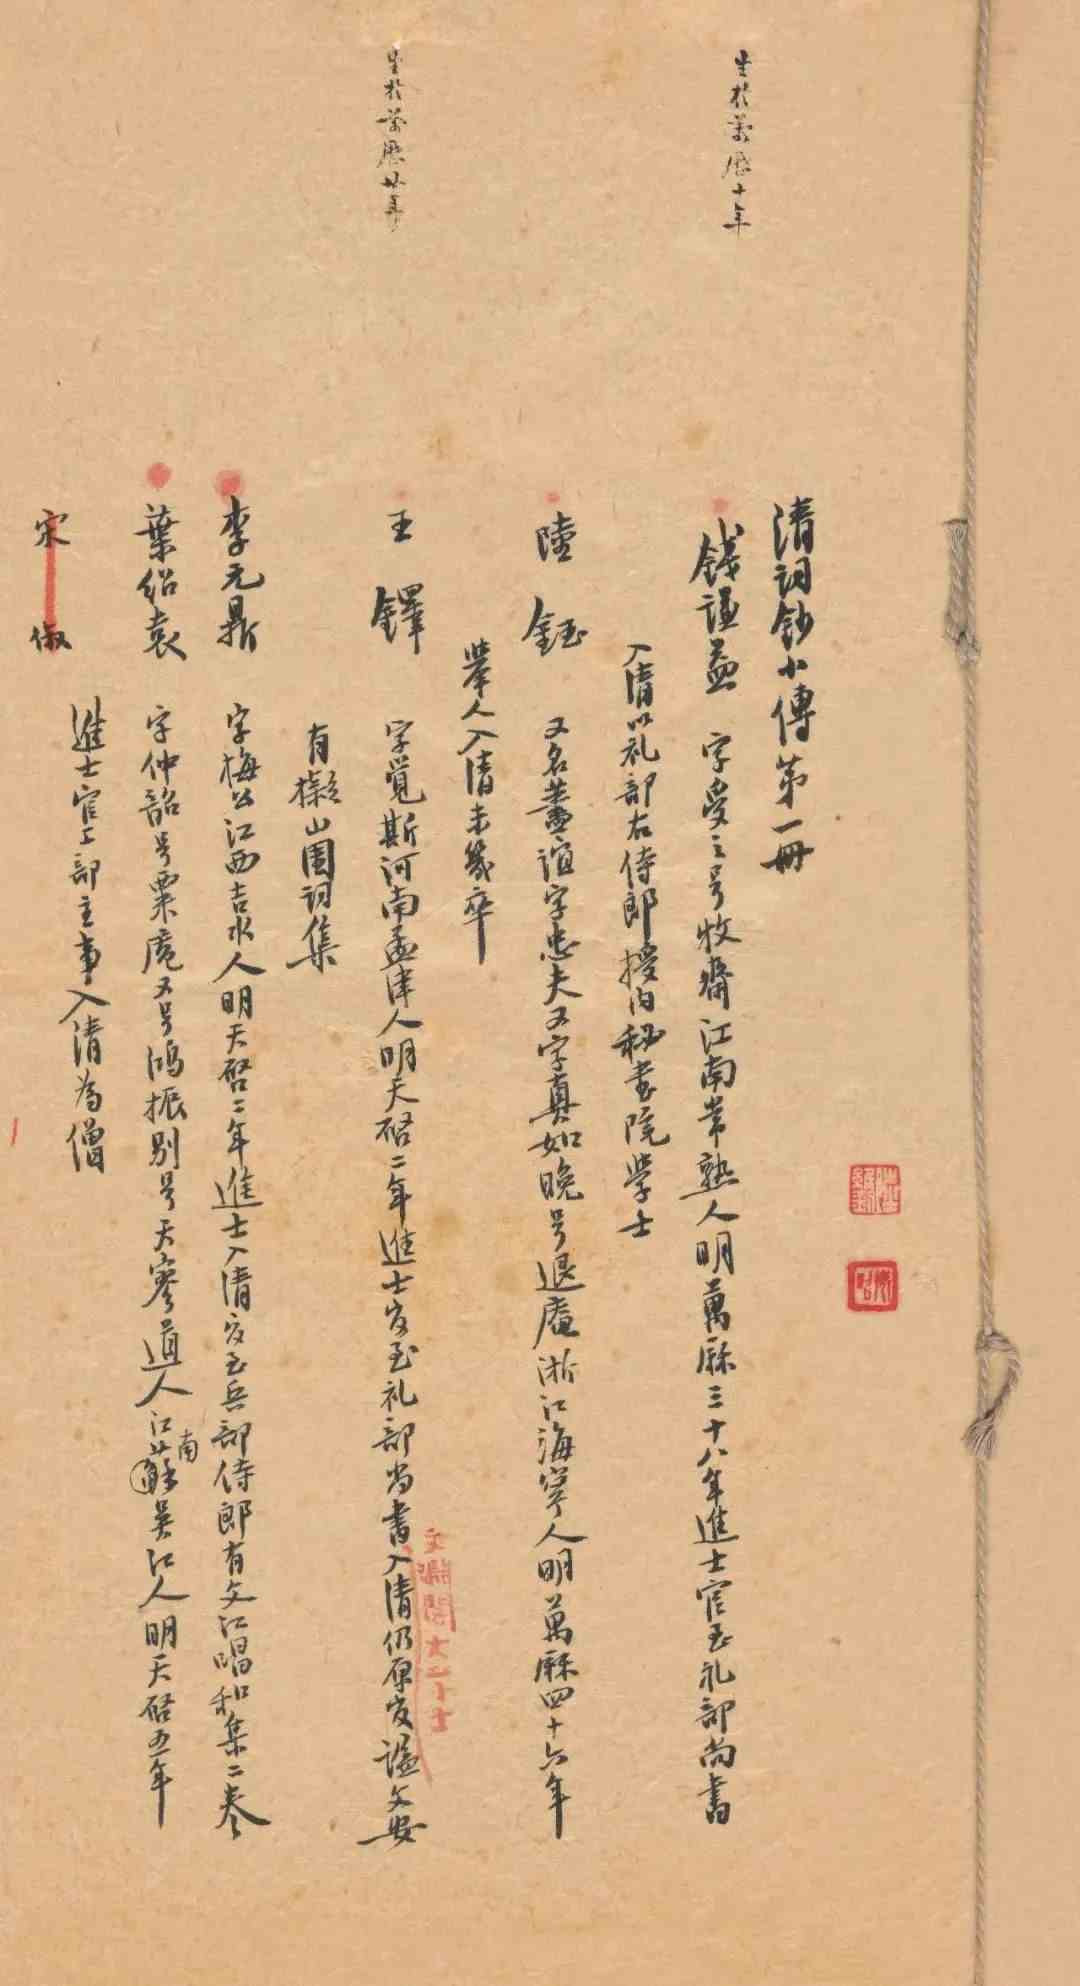 清词鈔小傳第一冊
生於萬歷十年
錢謙益　字受之号牧齋江南常熟人明萬厤三十八年進士官至礼部尚書
入清以礼部右侍郎授内秘書院學士
陸鈺　又名藎誼字忠夫又字真如晚号退庵浙江海寧人明萬厤四十六年
舉人入清未幾卒
生於萬歷廿年
王鐸　字覺斯河南孟津人明天啓二年進士官至礼部尚書入清仍原官謚文安
有擬山園詞集
李元鼎　字梅公江西吉水人明天啓二年進士入清官至兵部侍郎有文江唱和集二卷
葉紹袁　字仲韶号粟庵又号鴻振别号天寥道人江蘇南吴江人明天啓五年
進士官工部主事入清為僧
宋俶